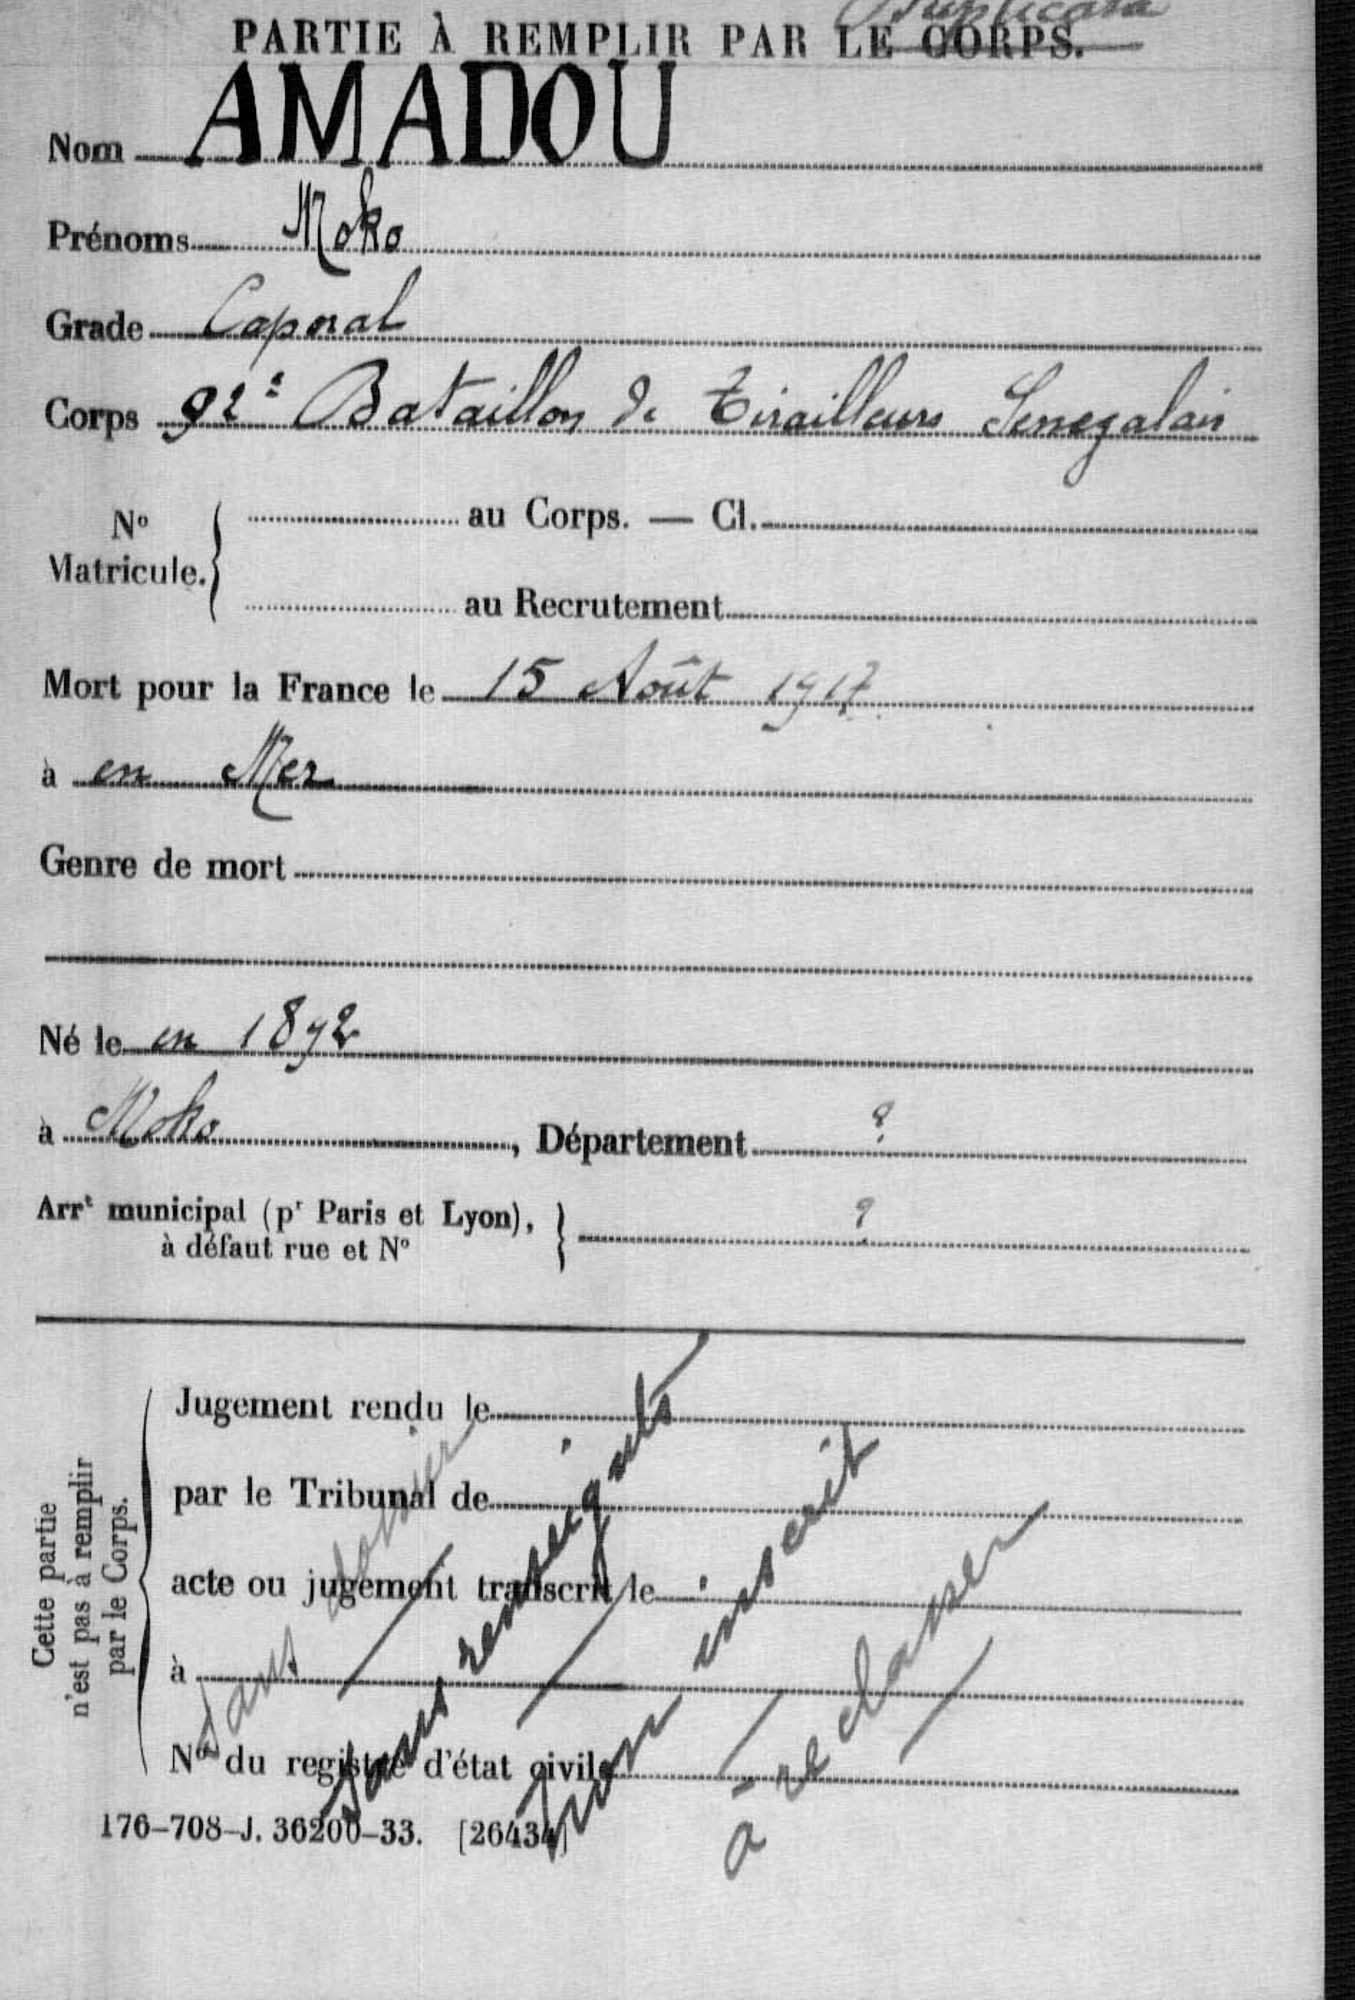 Duplicata
PARTIE À REMPLIR PAR LE CORPS.
Nom AMADOU
Prénoms Moko
Grade Caporal
Corps 92e Bataillon de Tirailleurs Senegalais
No Matricule. { au Corps. — Cl.
au Recrutement
Mort pour la France le 15 Août 1917
à en Mer
Genre de mort
Né le en 1892
à Moko, Département ?
Arrt municipal (pr Paris et Lyon), } ?
à défaut rue et No
Cette partie
n'est pas à remplir
par le Corps.
Jugement rendu le
par le Tribunal de
acte ou jugement transcrit le
à
No du registre d'état civil
sans dossier
sans renseignts
non inscrit
à reclasser
176-708-J. 36200-33. [26434]